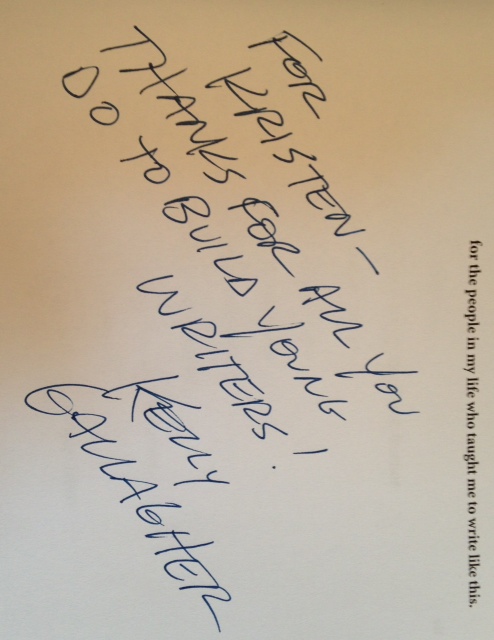 for the people in my life who taught me to write like this.
FOR
KRISTEN—
THANKS FOR ALL YOU
DO TO BUILD YOUNG
WRITERS!
KELLY
GALLAGHER